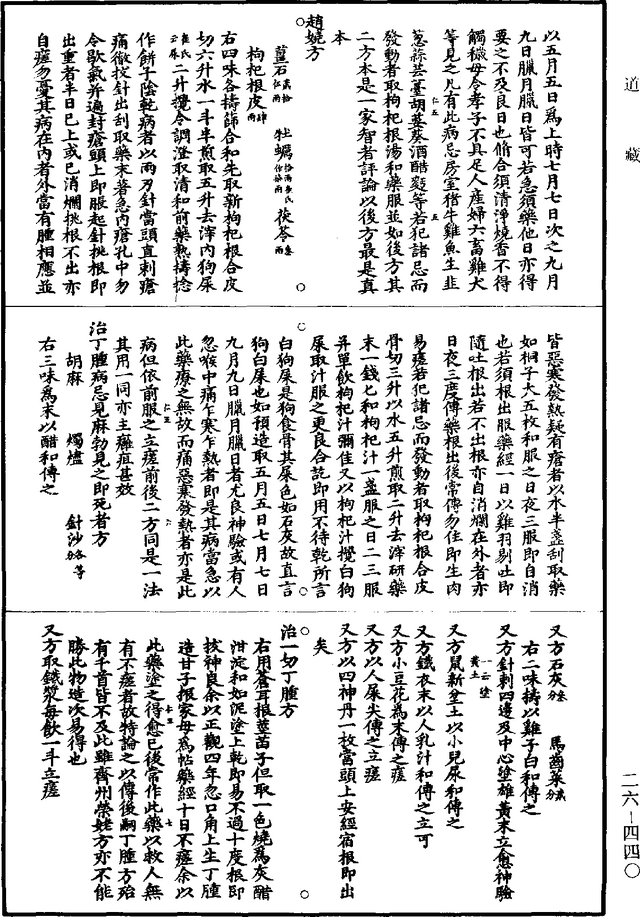 道藏
以五月五日爲上時七月七日次之九月
九日臘月臘日皆可若急須藥他日亦得
要之不及良日也脩合須清淨燒香不得
觸穢毋令孝子不具足人産婦六畜雞犬
等見之凡有此病忌房室猪牛雞魚生韭
葱蒜芸薹胡荽葵酒醋麪等若犯諸忌而
發動者取枸杞根湯和藥服並如後方其
二方本是一家智者評論以後方最是真
本
趙嬈方
薑石 牡蠣 茯苓
枸杞根皮
右四味各擣篩合和先取新枸杞根合皮
切六升水一斗半煎取五升去滓内狗屎
二升攪令調澄取清和前藥熟擣捻
作餅子陰乾病者以兩刃針當頭直刺瘡
痛徹拔針出刮取藥末著急内瘡孔中勿
令歇氣并遍封瘡頭上即服起針挑根即
出重者半日已上或已消爛挑根不出亦
自瘥勿憂其病在内者外當有腫相應並
皆惡寒發熱疑有瘡者以水半盞刮取藥
如桐子大五枚和服之日夜三服即自消
也若須根出服藥經一日以雞羽剔吐即
隨吐根出若不出根亦自消爛在外者亦
日夜三度傅藥根出後常傅勿住即生肉
易瘥若犯諸忌而發動者取枸杞根合皮
骨切三升以水五升煎取二升去滓研藥
末一錢匕和枸杞汁一盞服之日二三服
并單飲枸杞汁彌佳又以枸杞汁攪白狗
屎取汁服之更良合訖即用不待乾所言
白狗屎是狗食骨其屎色如石灰故直言
狗白屎也如預造取五月五日七月七日
九月九日臘月臘日者尤良神驗或有人
忽喉中痛乍寒乍熱者即是其病當急以
此藥療之無故而痛惡寒發熱者亦是此
病但依前服之立瘥前後二方同是一法
其用一同亦主癰疽甚效
治丁腫病忌見麻勃見之即死者方
胡麻 燭燼 針沙各等分
右三味爲末以醋和傅之
又方石灰 馬齒菜
右二味擣以雞子白和傅之
又方針刺四邊及中心塗雄黃末立愈神驗
一云塗黃土
又方鼠新坌土以小兒尿和傅之
又方鐵衣末以人乳汁和傅之立可
又方小豆花爲末傅之瘥
又方以人屎尖傅之立瘥
又方以四神丹一枚當頭上安經宿根即出
矣
治一切丁腫方
右用蒼耳根莖苗子但取一色燒爲灰醋
泔淀和如泥塗上乾即易不過十度根即
拔神良余以正觀四年忽口角上生丁腫
造甘子振家母爲帖藥經十日不瘥余以
此藥塗之得愈已後常作此藥以救人無
有不瘥者故特論之以傳後嗣丁腫方殆
有千首皆不及此雖齊州榮姥方亦不能
勝此物造次易得也
又方取鐵漿每飲一斗立瘥
二六-四四〇